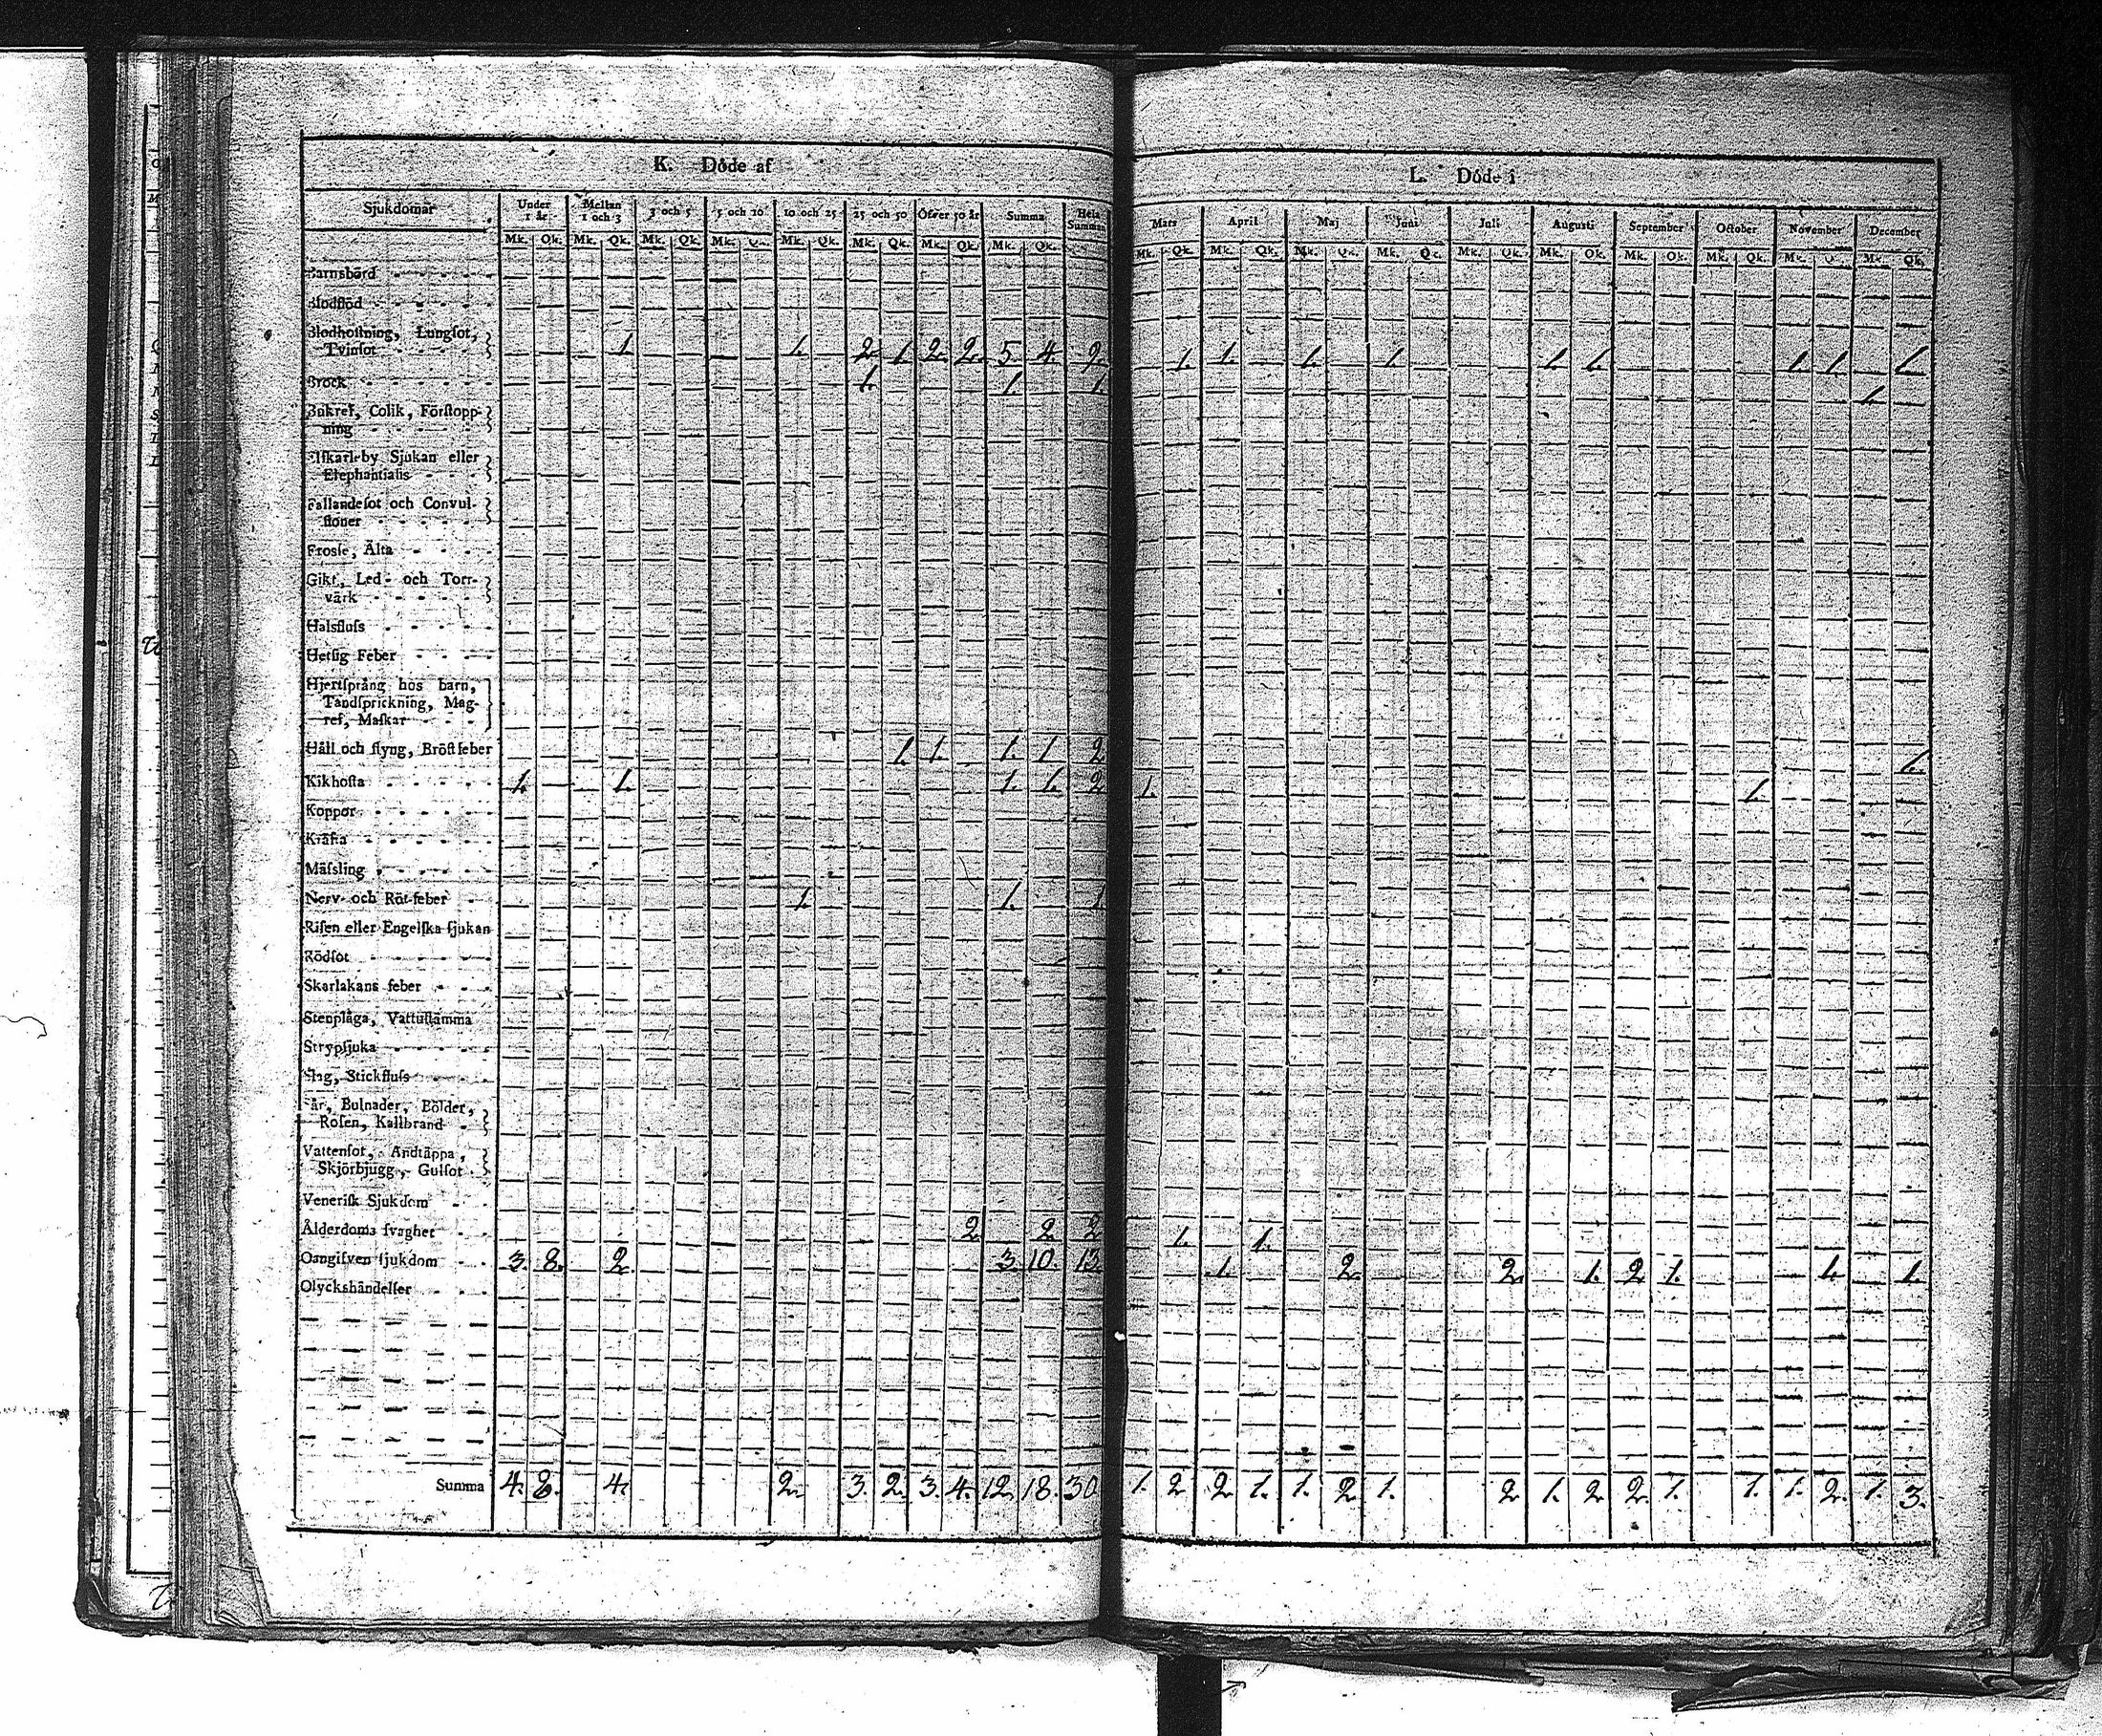 K. Döde af
Sjukdomar Under 1 år Mellan 1 och 3 3 och 5 5 och 10 10 och 25 25 och 50 Öfver 50 år Summa Hela Summan
Mk. Qk. Mk. Qk. Mk. Qk. Mk. Mk. Qk. Mk. Qk. Mk. Qk. Mk. Qk.
Barnsbörd
Blodflöd
Blodhostning, Lungsot,
Tvinsot 1. 1. 2. 1. 2. 2. 5. 4. 9.
Bråck 1. 1. 1.
Bukref, Colik, Förstopp-
ning
Elfkarleby Sjukan eller
Elephantiasis
Fallandesot och Convul-
sioner
Frossa, Älta
Gikt, Led- och Torr-
värk
Halsfluss
Hetsig Feber
Hjertsprång hos barn,
Tandsprickning, Mag-
ref, Maskar
Håll och styng, Bröstfeber 1. 1. 1. 1 2
Kikhosta 1. 1. 1. 1. 2
Koppor
Kräfta
Mässling
Nerv- och Röt-feber 1. 1. 1
Risen eller Engelska sjukan
Rödsot
Skarlakans feber
Stenplåga, Vattustämma
Strypsjuka
Slag, Stickfluss
Sår, Bulnader, Bölder,
Rosen, Kallbrand
Vattensot, Andtäppa,
Skjörbjugg, Gulsot
Venerisk Sjukdom
Ålderdoms svaghet 2 2. 2
Oangifven sjukdom 3. 8. 2. 3. 10. 13.
Olyckshändelser
Summa 4. 8. 4. 2. 3. 2. 3. 4. 12. 18. 30
L. Döde i
Mars April Maj Juni Juli Augusti September October November December
Mk. Qk. Mk. Qk. Mk. Qk. Mk. Qk. Mk. Qk. Mk. Qk. Mk. Qk. Mk. Qk. Mk. Mk. Qk.
1. 1. 1. 1. 1. 1. 1. 1. 1.
1.
1.
1. 1.
1. 1.
1. 2. 2. 1. 2 1. 1. 1.
1. 2 2 1. 1. 2 1. 2 1. 2 2. 1. 1. 1. 2. 1. 3.